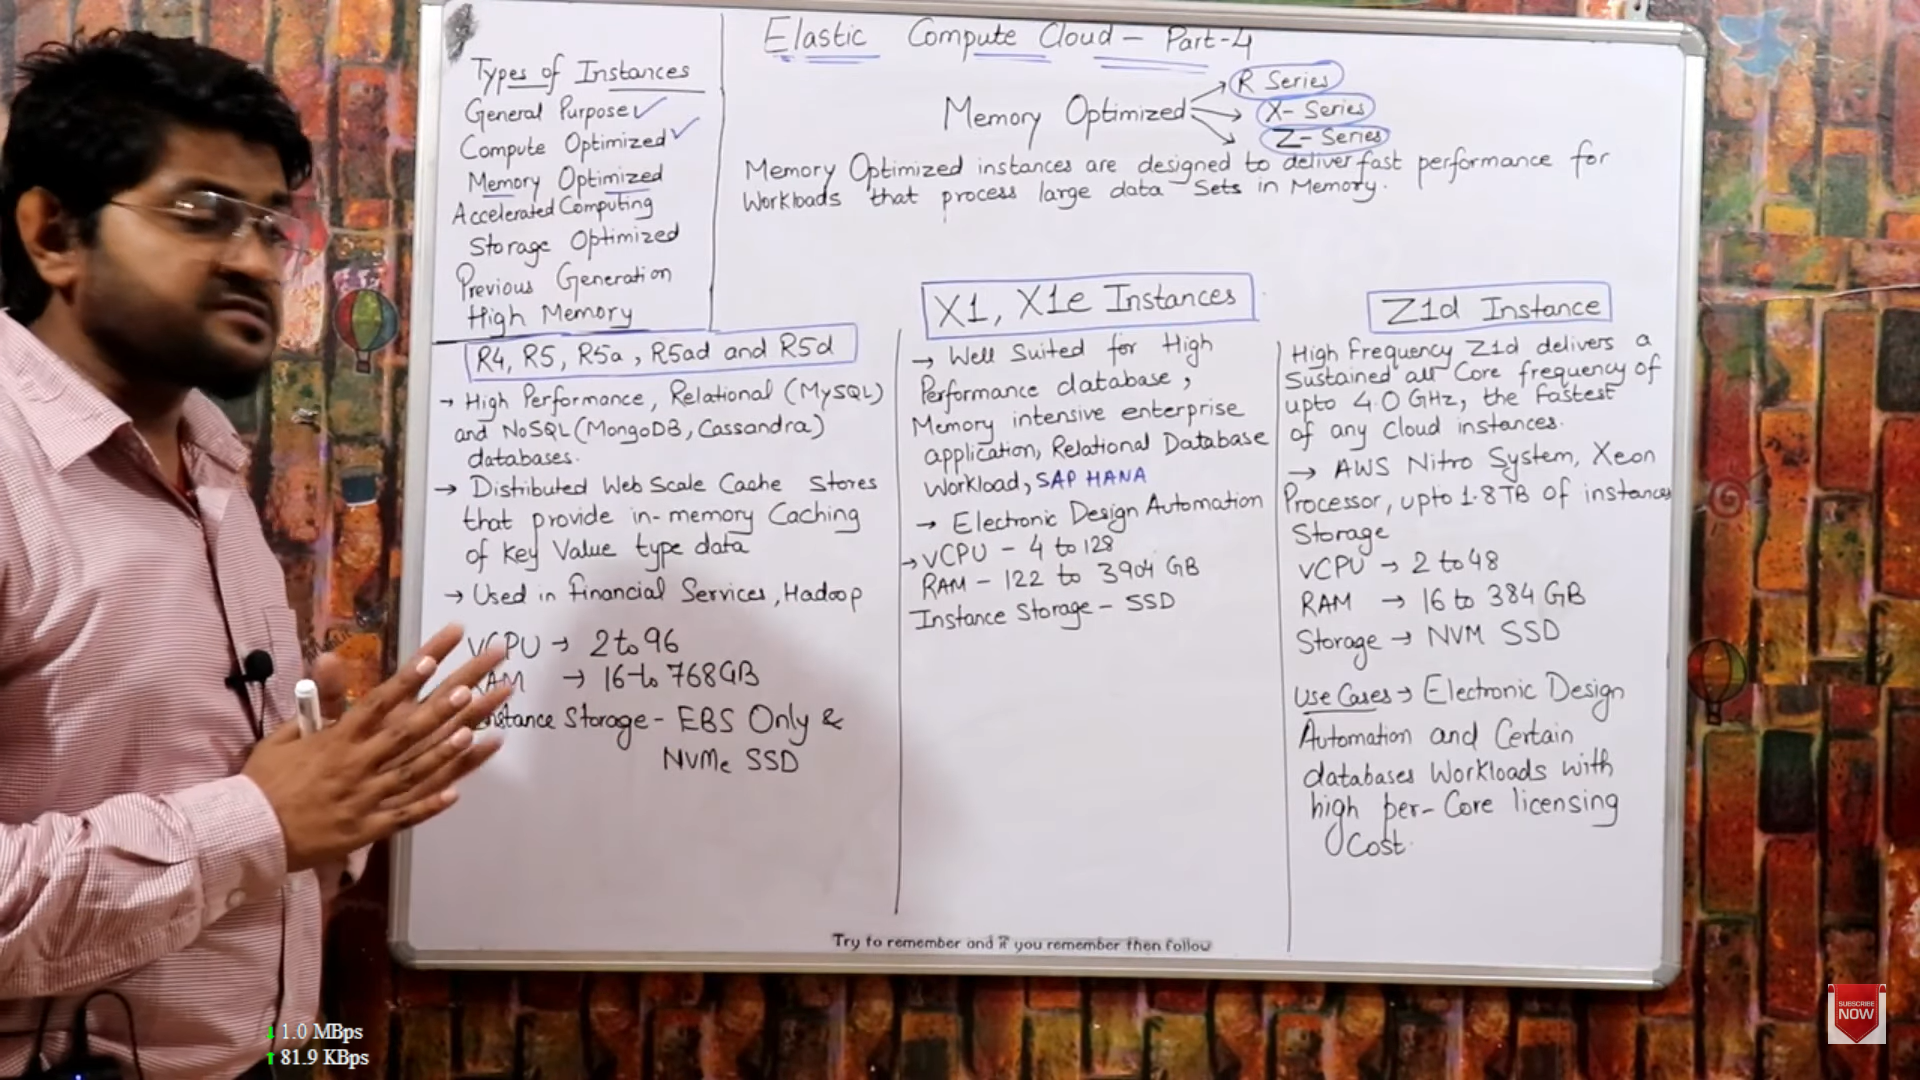 Elastic Compute Cloud - Part-4
Types of Instances
General Purpose ✓
Compute Optimized ✓
Memory Optimized
Accelerated Computing
Storage Optimized
Previous Generation
High Memory
Memory Optimized
R Series
X- Series
Z- Series
Memory Optimized instances are designed to deliver fast performance for
Workloads that process large data Sets in Memory.
R4, R5, R5a, R5ad and R5d
→ High Performance, Relational (MySQL)
and NoSQL (MongoDB, Cassandra)
databases.
→ Distributed Web Scale Cache Stores
that provide in-memory Caching
of Key Value type data
→ Used in Financial Services, Hadoop
VCPU → 2 to 96
RAM → 16 to 768GB
Instance Storage - EBS Only &
NVMe SSD
X1, X1e Instances
→ Well Suited for High
Performance database,
Memory intensive enterprise
application, Relational Database
Workload, SAP HANA
→ Electronic Design Automation
→ VCPU - 4 to 128
RAM - 122 to 3904 GB
Instance Storage - SSD
Z1d Instance
High Frequency Z1d delivers a
Sustained all Core frequency of
upto 4.0 GHz, the fastest
of any Cloud instances.
→ AWS Nitro System, Xeon
Processor, upto 1.8TB of instances
Storage
VCPU → 2 to 48
RAM → 16 to 384 GB
Storage → NVM SSD
Use Cases → Electronic Design
Automation and Certain
databases Workloads with
high per-Core licensing
Cost.
Try to remember and if you remember then follow
1.0 MBps
81.9 KBps
SUBSCRIBE
NOW